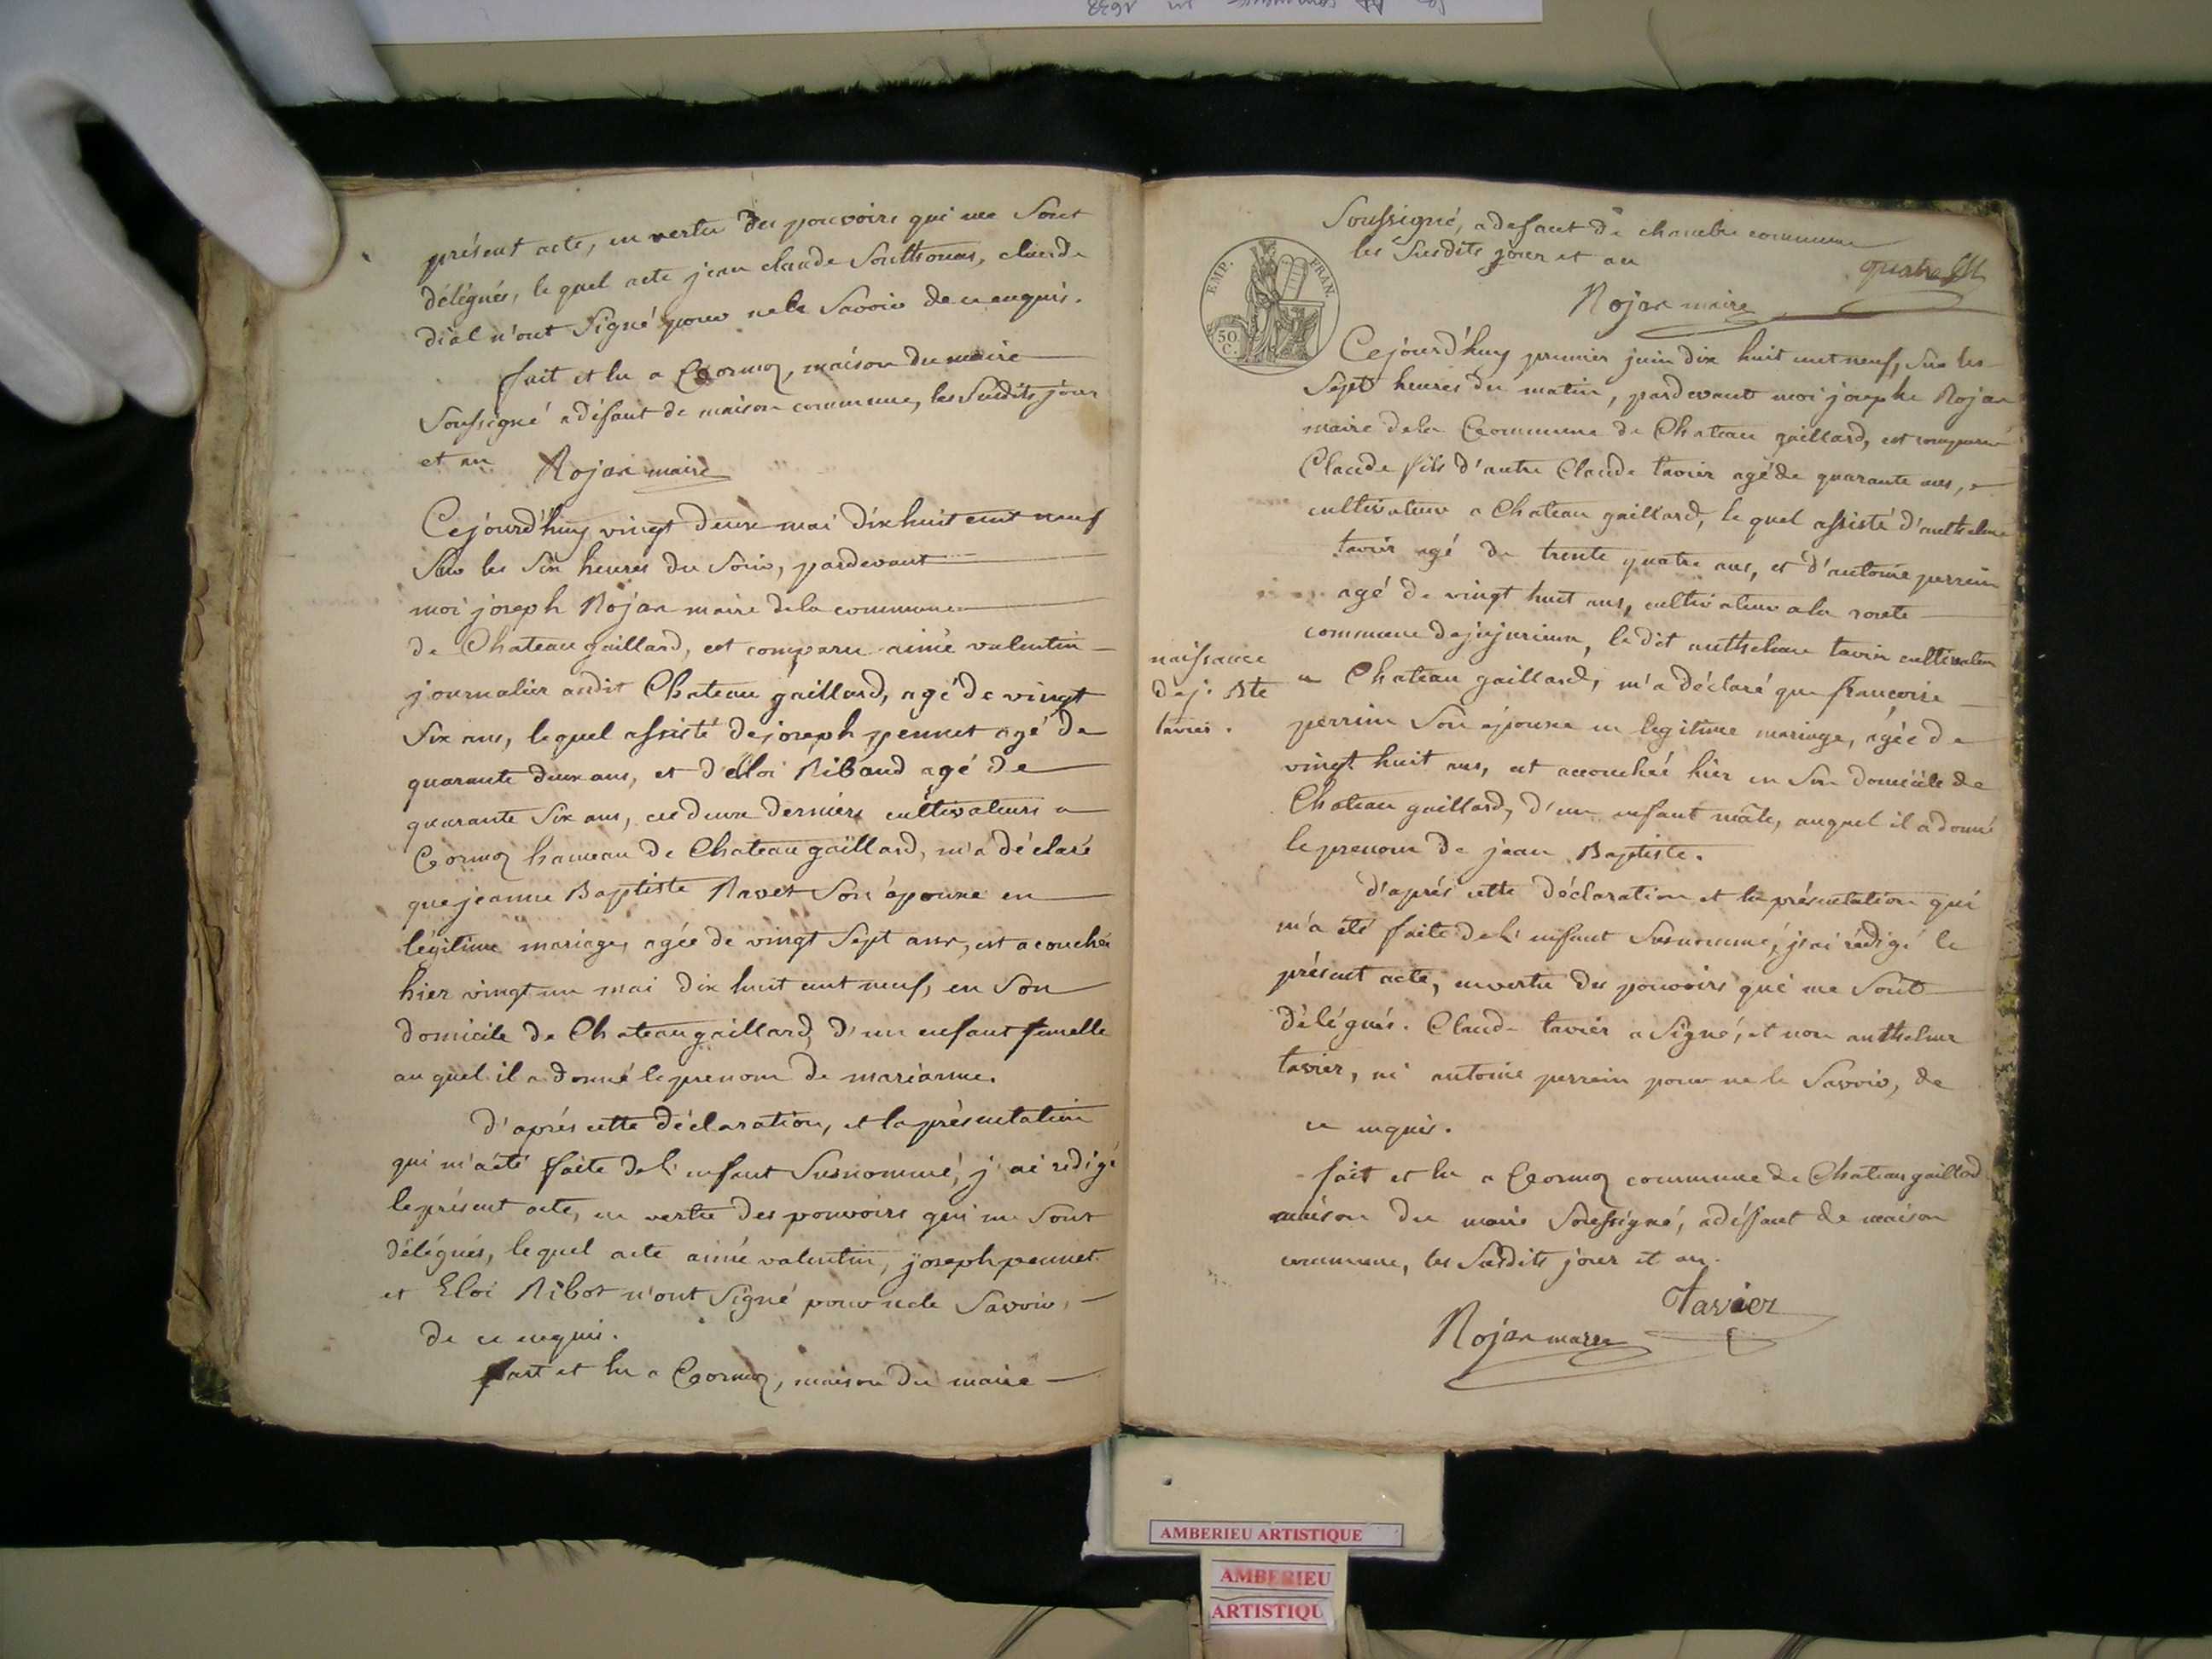 présent acte, en vertu des pouvoirs qui me sont
délégués, le quel acte jean claude Southonas, claude
dial n'ont signé pour ne le savoir de ce enquis.
fait et lu a Cormoz, maison du maire
soussigné a défaut de maison commune, les susdits jour
et an Rojan maire
Cejourd'huy vingt deux mai dix huit cent neuf
sur les six heures du soir, pardevant
moi joseph Rojan maire dela commune
de Chateau gaillard, est comparu aimé valentin
journalier audit Chateau gaillard, agé de vingt
six ans, lequel assisté de joseph pennet agé de
quarante deux ans, et d'Eloi Ribaud agé de
quarante six ans, ces deux derniers cultivateurs a
Cormoz hameau de Chateau gaillard, m'a déclaré
que jeanne Baptiste Ravet son épouse en
légitime mariage, agée de vingt sept ans, est acouchée
hier vingt un mai dix huit cent neuf, en son
domicile de Chateau gaillard, d'un enfant femelle
au quel il a donné le prenom de marianne.
D'aprés cette déclaration, et la présentation
qui m'a été faite de l'enfant susnommé, j'ai rédigé
le présent acte, en vertu des pouvoirs qui me sont
délégués, lequel acte aimé valentin, joseph pennet
et Eloi Ribot n'ont signé pour ne le savoir,
de ce enquis.
fait et lu a Cormoz, maison du maire
soussigné, a defaut de chambre commune
les susdits jour et an
quatre
Rojan maire
EMP. FRAN.
50 C.
Cejourd'huy premier juin dix huit cent neuf, sur les
sept heures du matin, pardevant moi josephe Rojan
maire dela Commune de Chateau gaillard, est comparu
Claude fils d'autre Claude tavier agé de quarante ans,
cultivateur a Chateau gaillard, le quel assisté d'anthelme
tavier agé de trente quatre ans, et d'antoine perrein
agé de vingt huit ans, cultivateur a la route
commune de jujurieux, le dit anthelme tavier cultivateur
a Chateau gaillard, m'a déclaré que françoise
naissance
de j. Bte
tavier.
perrein son épouse en legitime mariage, agée de
vingt huit ans, est accouchée hier en son domicile de
Chateau gaillard, d'un enfant mâle, auquel il a donné
le prenom de jean Baptiste.
d'aprés cette déclaration et la présentation qui
m'a été faite de l'enfant susnommé, j'ai rédigé le
présent acte, en vertu des pouvoirs qui me sont
délégués. Claude tavier a signé, et non anthelme
tavier, ni antoine perrein pour ne le savoir, de
ce enquis.
fait et lu a Cormoz commune de Chateau gaillard
maison du maire soussigné, a défaut de maison
commune, les susdits jour et an.
Tavier
Rojan maire
AMBERIEU ARTISTIQUE
AMBERIEU
ARTISTIQU